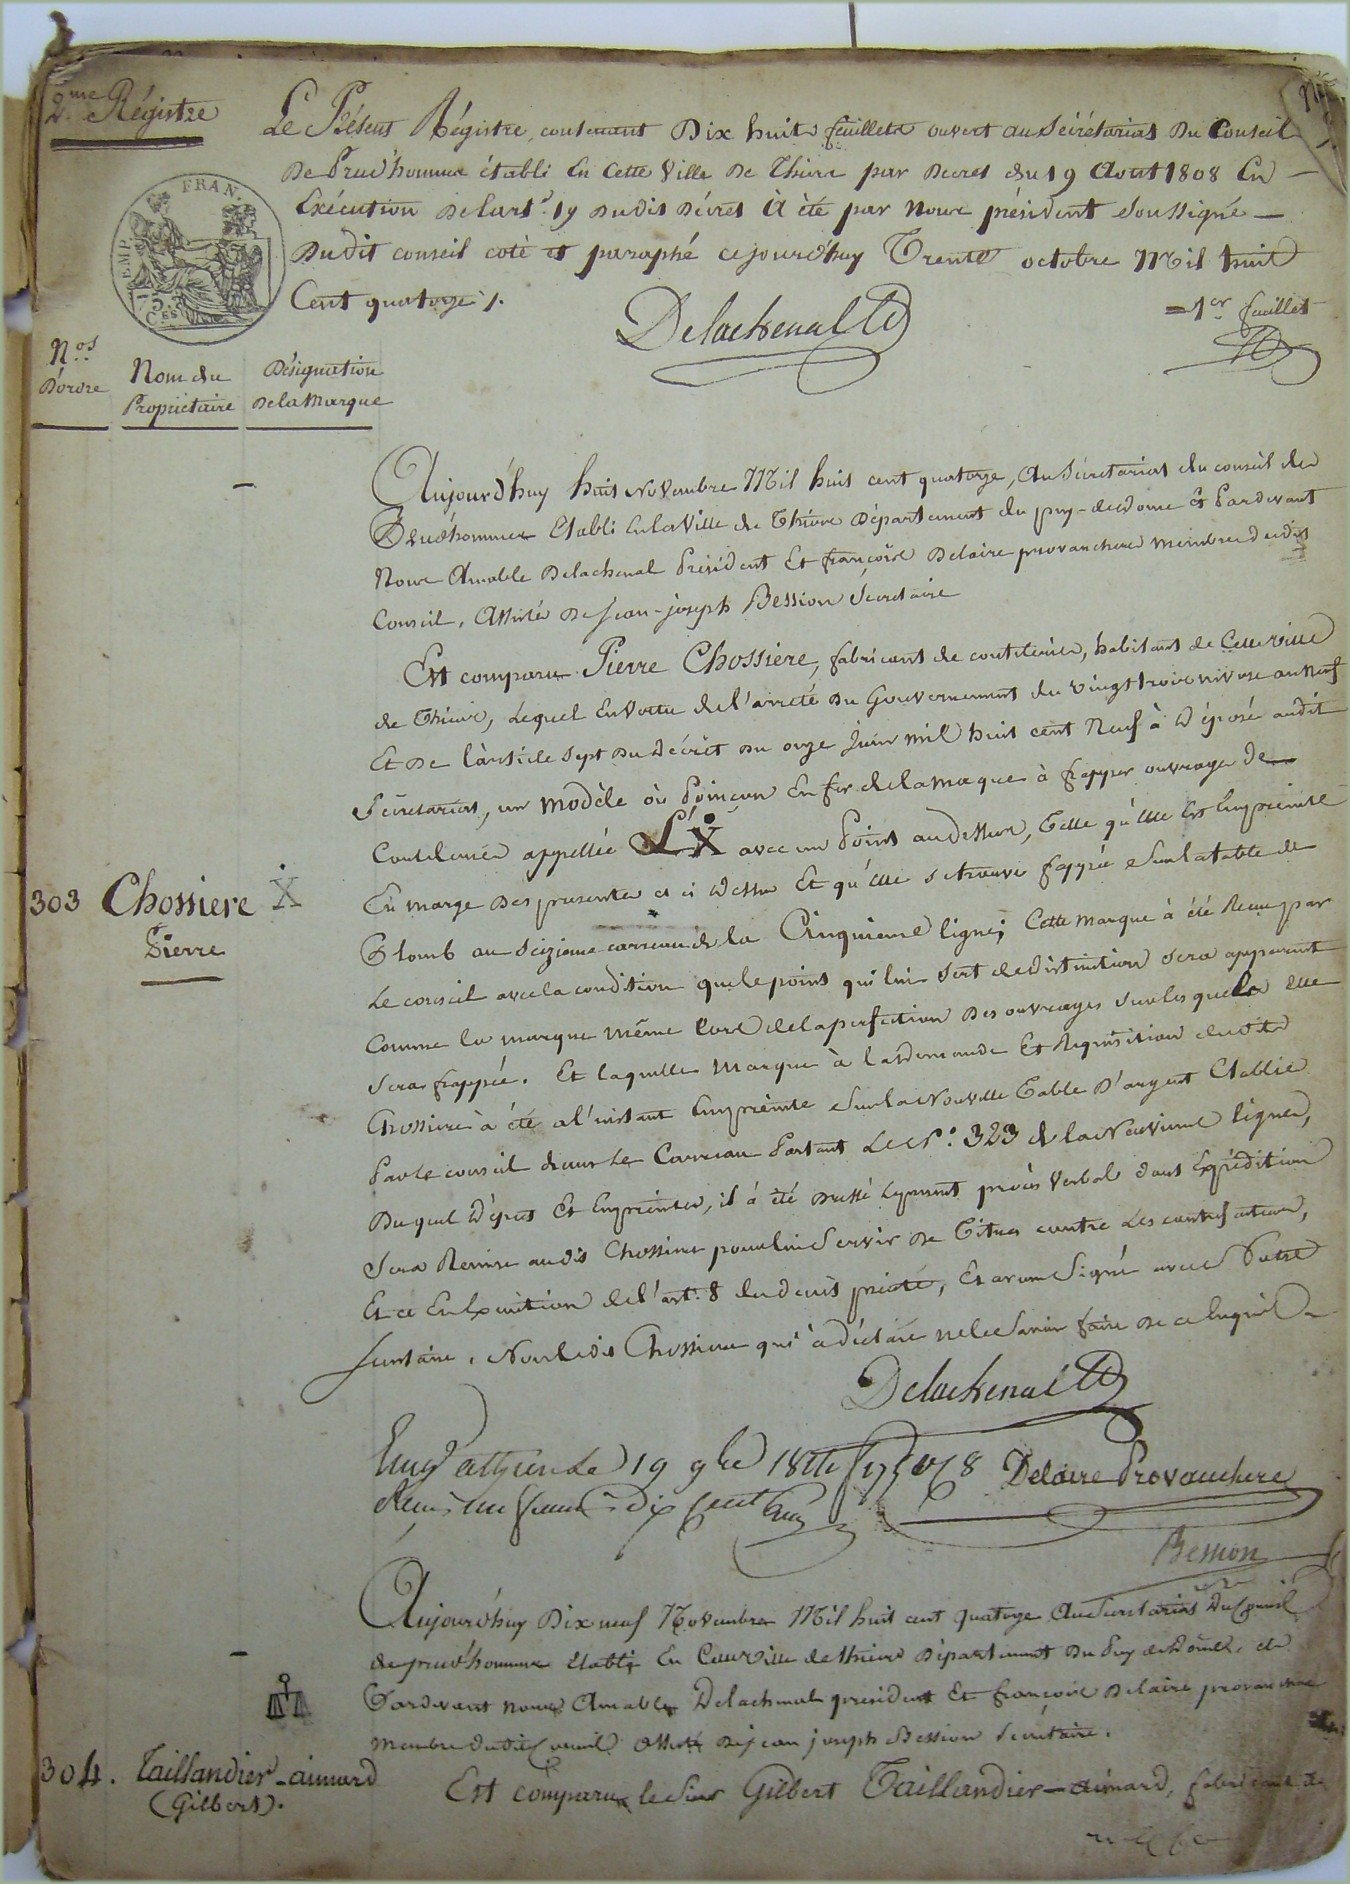 2me Régistre
Le Présent Régistre, contenant Dix huit feuillets ouvert au Sécrétariat Du Conseil
De Prud'hommes établi En Cette Ville De Thiers par Decret du 19 Aout 1808 En
Exécution De l'art. 19 Dudit Décret à été par Nous président Soussigné
Dudit conseil coté et paraphé cejourd'huy Trente octobre Mil huit
Cent quatorze /.
EMP. FRAN.
75 Ces
Delachenal
1er feuillet
Nos D'ordre
Nom du Propriétaire
Désignation De la Marque
Aujourd'huy huit Novembre Mil huit cent quatorze, Au Sécretariat du conseil de
Prud'hommes Etabli En la Ville de Thiers Département du puy-de-dome et Pardevant
Nous Amable Delachenal Président Et françois Delaire provanchere membre dudit
Conseil, Assistés De Jean-joseph Bession Sécretaire
Est comparu Pierre Chossiere, fabricant de coutelerie, habitant de Cette ville
de Thiers, Lequel En Vertu de l'arreté Du Gouvernement du vingt trois nivose an Neuf
Et De l'article Sept Du Décret Du onze Juin mil huit cent Neuf à Déposé audit
Sécretariat, un Modèle où Poinçon En fer de la marque à frapper ouvrages De
Coutelerie appellée L'X avec un Point au dessus, Telle qu'elle Est Empreinte
En marge Des presentes et ci Dessus Et qu'elle se trouve frappée Sur la table de
Plomb au Seizieme carreau de la Cinquieme ligne; Cette marque à été Reçue par
Le conseil avec la condition que le point qui lui Sert de distinction Sera apparent
Comme la marque même lors de la perfection Des ouvrages Sur lesquels elle
Sera frappée. Et laquelle Marque à la Demande Et Requisition dudit
Chossiere à été a l'instant Empreinte Sur la Nouvelle Table D'argent Etablie
Par le conseil dans Le Carreau Portant Le No. 323 de la Neuvieme ligne,
Duquel Dépot Et Empreinte, il à été Dressé le present procès Verbal dont Expédition
Sera Remise audit Chossiere pour lui Servir De Titre contre Les contrefacteurs,
Et ce En Exécution de l'art. 8 du decret precité, Et avons Signé avec Notre
Secretaire, Non ledit Chossiere qui à déclaré ne le Savoir faire de ce Enquis
303 Chossiere Pierre
Ẋ
Delachenal
Enregé a Thiers Le 19 9bre 1814
Reçu un franc dix cent
Delaire Provanchere
Bession
Aujourd'huy Dix neuf Novembre Mil huit cent quatorze Au Secretariat Du Conseil
de prud'hommes établi En Cette Ville de thiers Département Du Puy de Dôme, et
Pardevant nous Amable Delachenal president Et françois Delaire provanchere
membre dudit Conseil assisté De jean joseph Bession Secrétaire.
304. Taillandier-aimard
(Gilbert).
Est comparu le Sieur Gilbert Taillandier-aimard, fabricant de